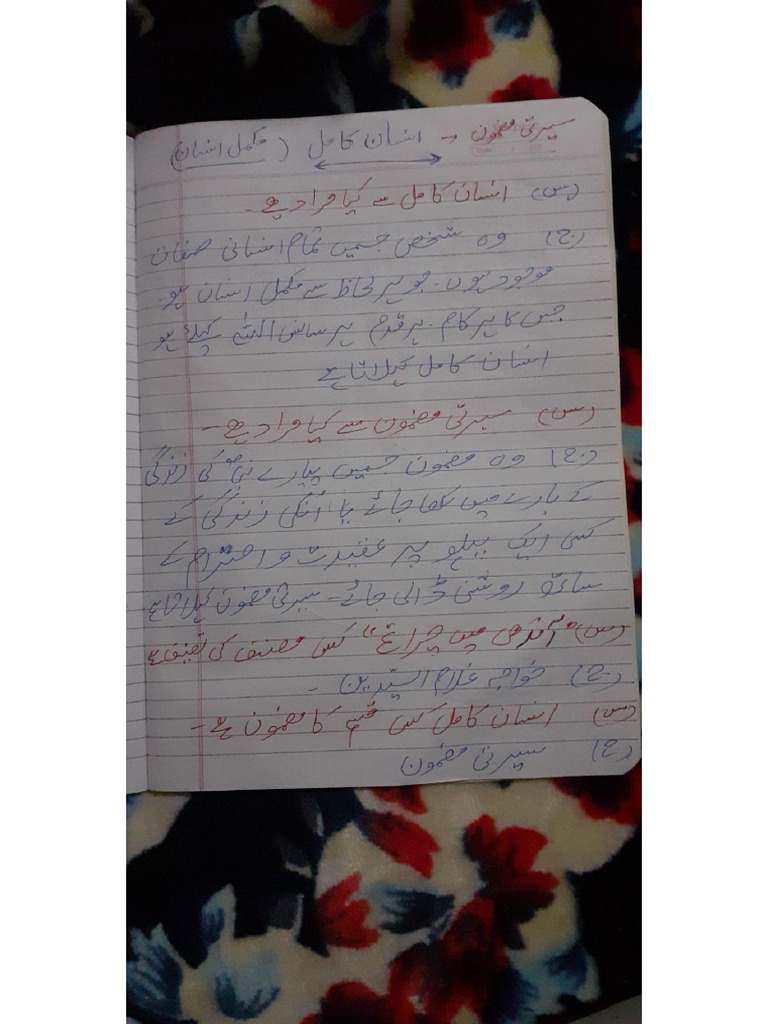 سیرتی مضمون ← انسان کامل (مکمل انسان)
(س) انسان کامل سے کیا مراد ہے۔
(ج) وہ شخص جسمیں تمام انسانی صفات
موجود ہوں۔ جو ہر لحاظ سے مکمل انسان ہو۔
جس کا ہر کام، ہر قدم ہر سانس اللہ کیلئے ہو
انسان کامل کہلاتا ہے
(س) سیرتی مضمون سے کیا مراد ہے۔
(ج) وہ مضمون جسمیں پیارے نبیؐ کی زندگی
کے بارے میں لکھا جائے یا اُنکی زندگی کے
کسی ایک پہلو پر عقیدت و احترام کے
ساتھ روشنی ڈالی جائے۔ سیرتی مضمون کہلاتا ہے
(س) "آندھی میں چراغ" کس مصنف کی تصنیف ہے
(ج) خواجہ غلام السیّدین۔
(س) انسان کامل کس قسم کا مضمون ہے۔
(ج) سیرتی مضمون